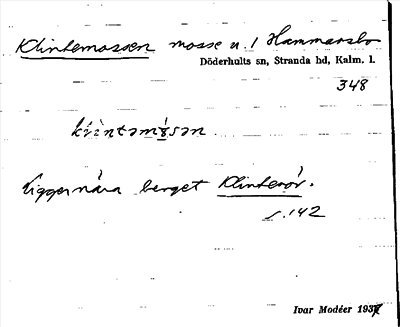 Klintemossen mosse u. 1 Hammarsbo
Döderhults sn, Stranda hd, Kalm. l.
348
klìntəmɷ̀sən.
Ligger nära berget Klinterör.
s. 142
Ivar Modéer 1937